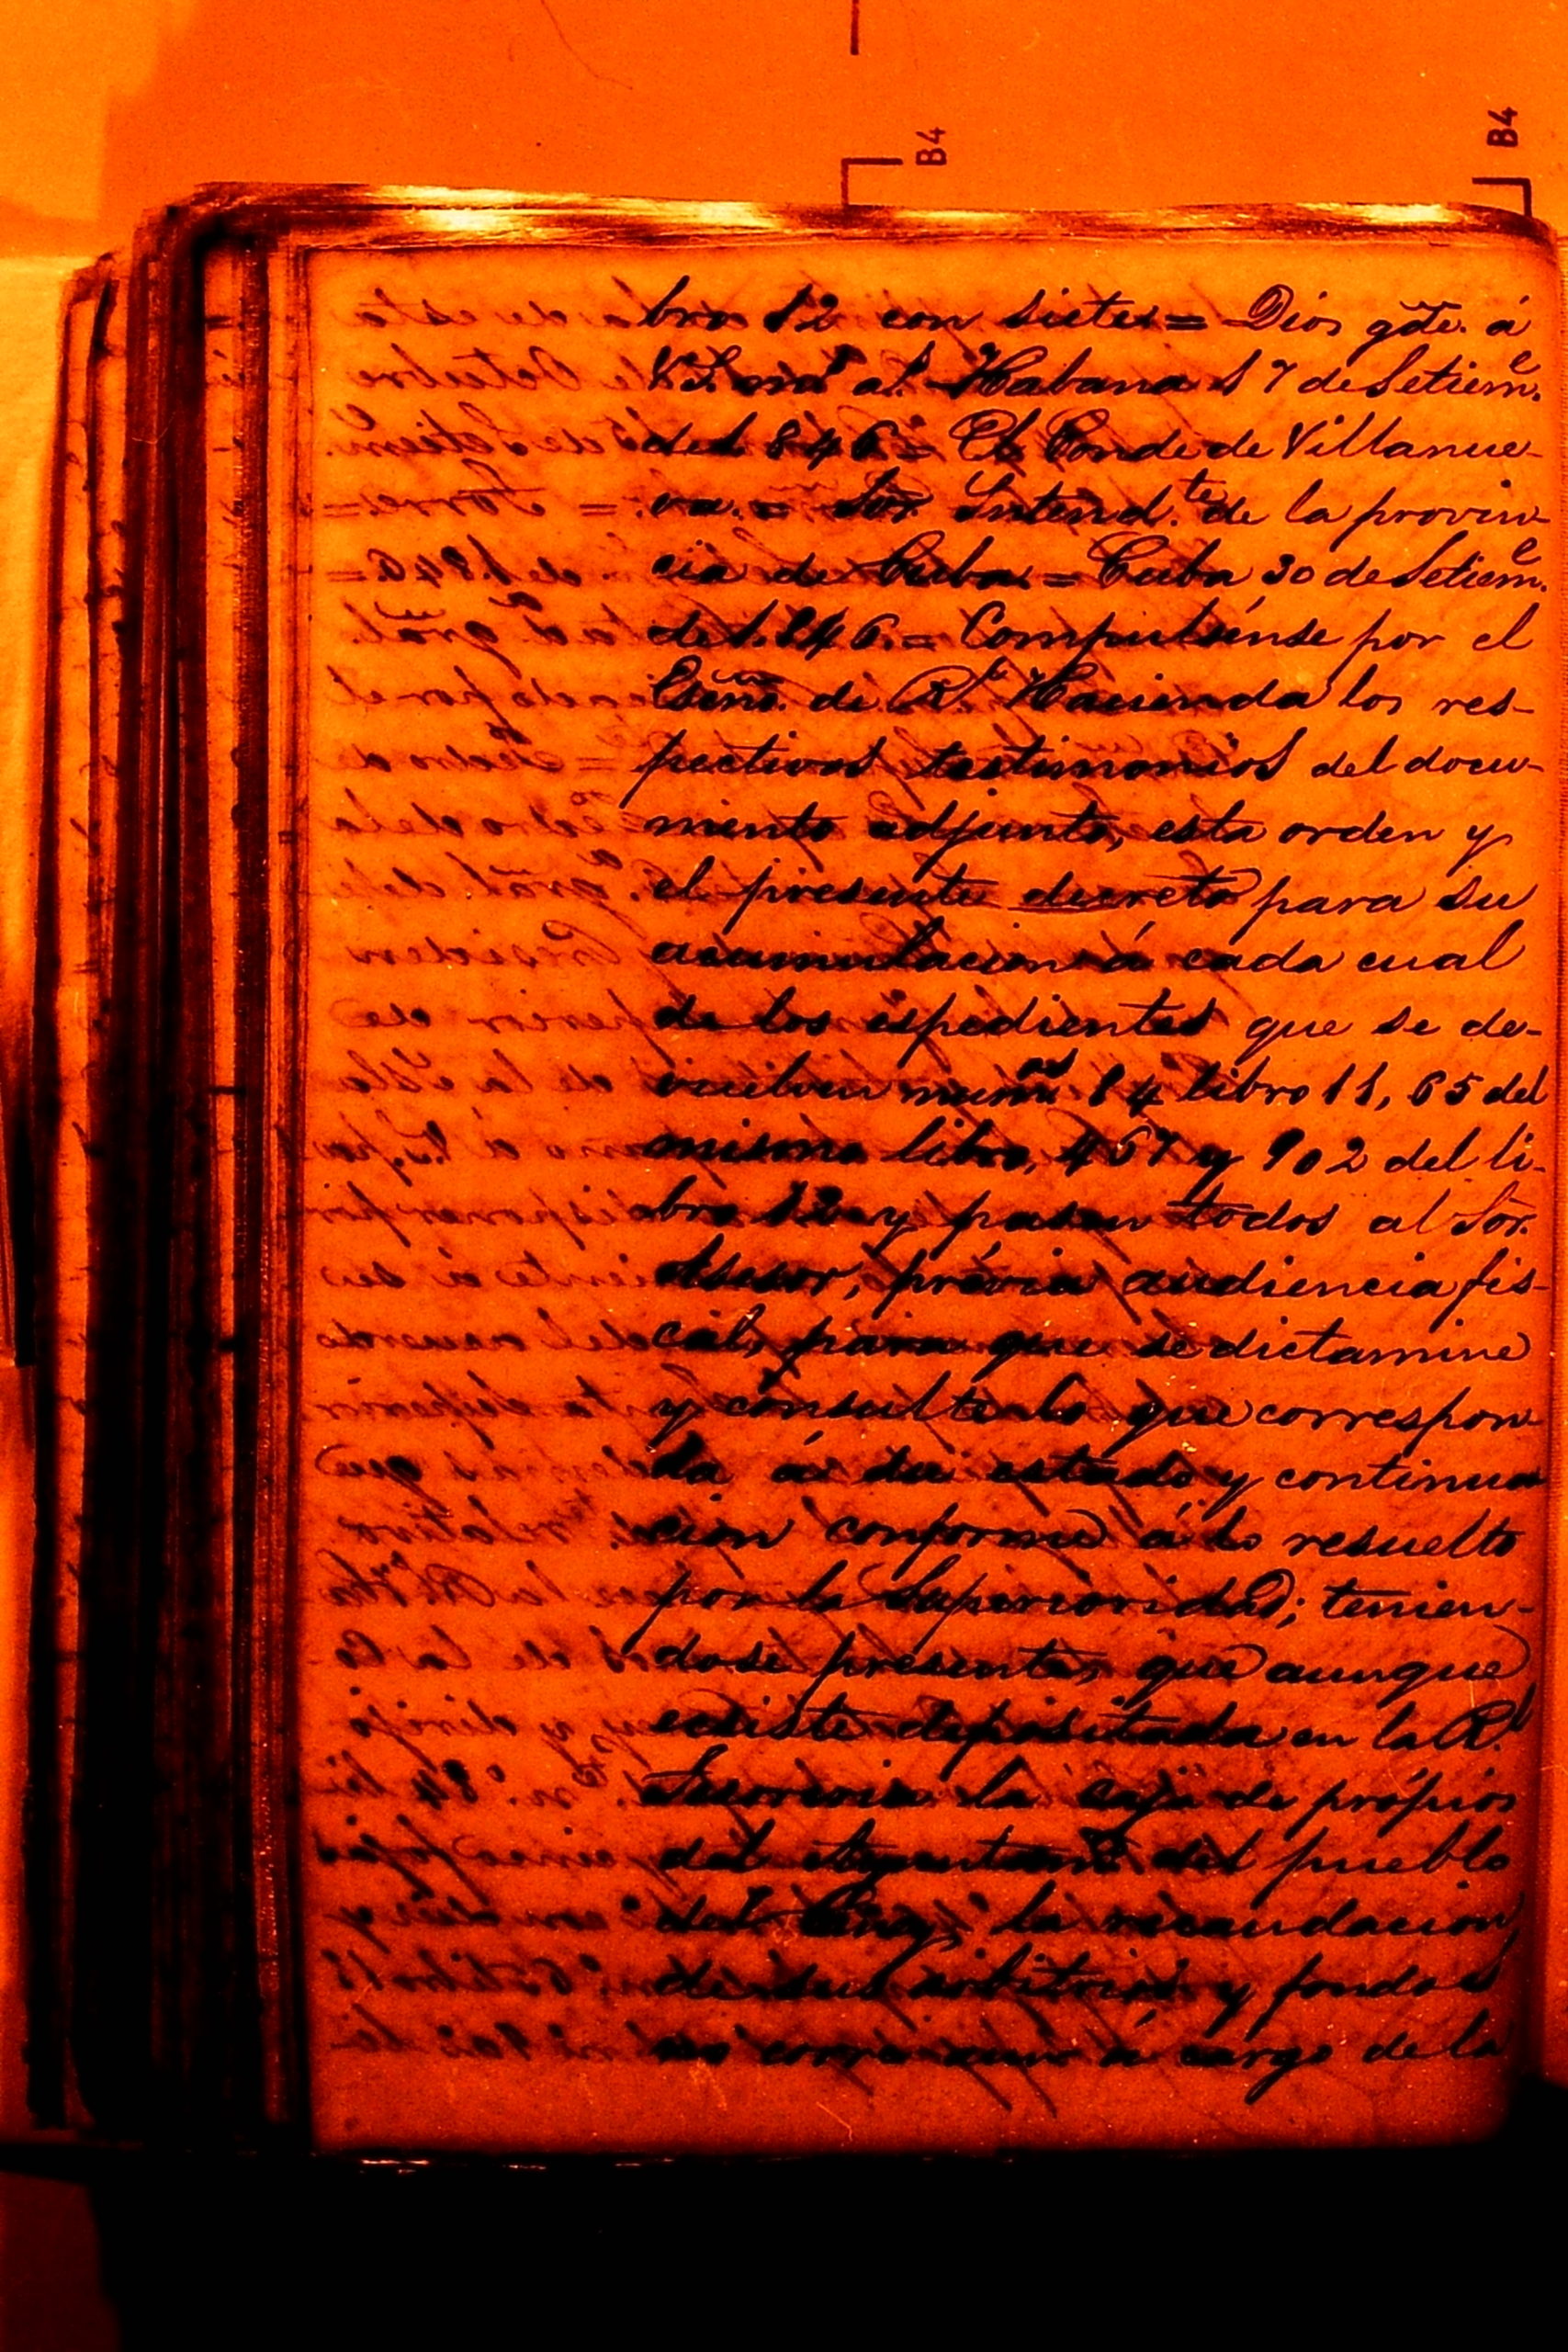 B4
B4
bro 12 con siete = Dios gde. á
V.S. ms. as. Habana 17 de Setiem.e
de 1846 = El Conde de Villanue-
va. = Sor. Intend.te de la provin-
cia de Cuba = Cuba 30 de Setiem.e
de 1.846. = Compulsense por el
Esno. de Rl. Hacienda los res-
pectivos testimonios del docu-
mento adjunto, esta orden y
el presente decreto para su
acumulacion á cada cual
de los espedientes que se de-
vuelven num.os 84 libro 11, 65 del
mismo libro, 457 y 902 del li-
bro 12 y pasen todos al Sor.
Asesor, prévia audiencia fis-
cal, para que se dictamine
y consulte lo que correspon-
da á su estado y continua
cion conforme á lo resuelto
por la Superioridad; tenien-
dose presente, que aunque
existe depositada en la Rl.
Tesoreria la caja de própios
del Ayuntam.to del pueblo
del la recaudacion
de sus arbitrios y fondos
no corre á cargo de la